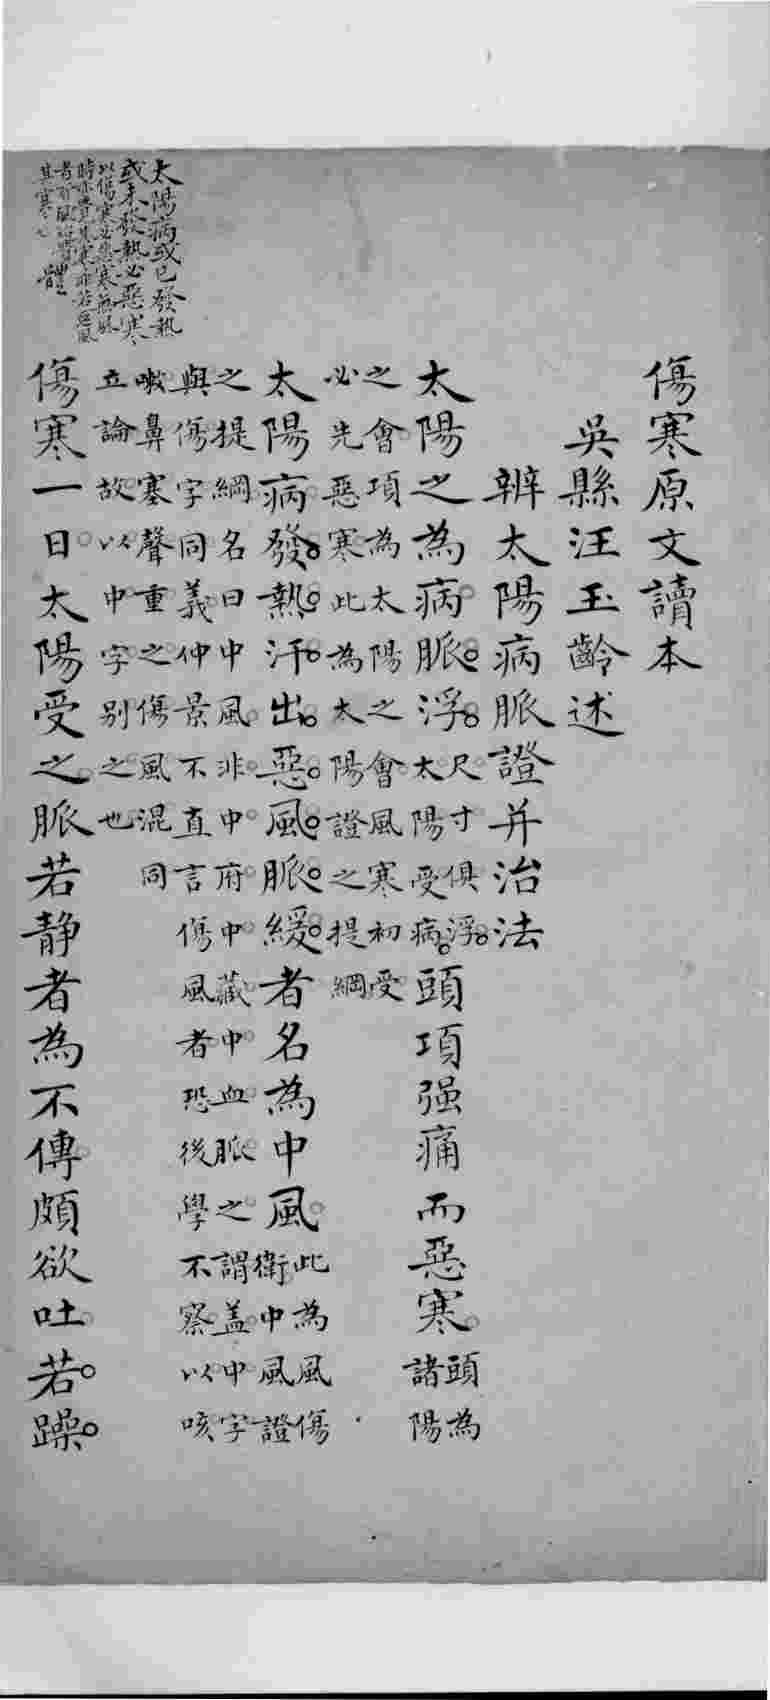 傷寒原文讀本
吳縣汪玉齡述
辨太陽病脈證并治法
太陽之為病脈浮尺寸俱浮太陽受病頭項强痛而惡寒頭為諸陽
之會項為太陽之會風寒初受
必先惡寒此為太陽證之提綱
太陽病發熱汗出惡風脈緩者名為中風此為風傷衛中風證
之提綱名曰中風非中府中藏中血脈之謂蓋中字
與傷字同義仲景不直言傷風者恐後學不察以咳
嗽鼻塞聲重之傷風混同
立論故以中字别之也
傷寒一日太陽受之脈若静者為不傳頗欲吐若躁
太陽病或已發熱
或未發熱必惡寒
以傷寒必惡寒無風
時亦覺其寒非若惡風
者有風始覺
其寒也 體